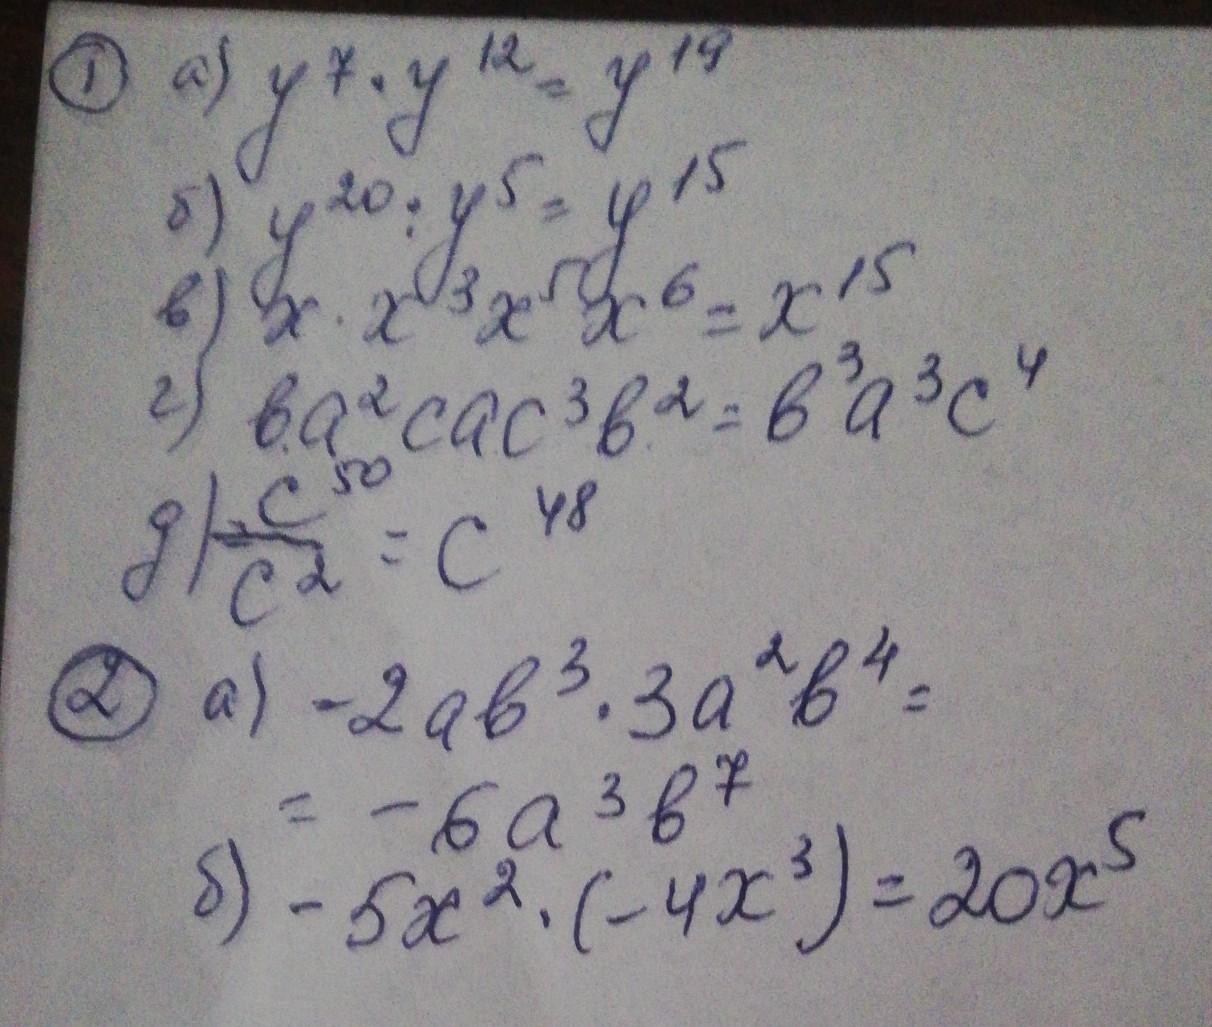 ① а) y⁷ · y¹² = y¹⁹
б) y²⁰ : y⁵ = y¹⁵
в) x · x³x⁵x⁶ = x¹⁵
г) вa²cac³в² = в³a³c⁴
д) c⁵⁰/c² = c⁴⁸
② а) -2aв³ · 3a²в⁴ =
= -6a³в⁷
б) -5x² · (-4x³) = 20x⁵